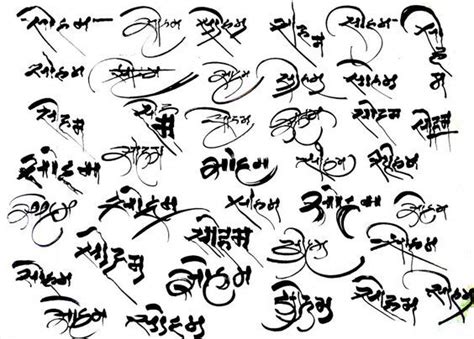 सोहम सोहम सोहम सोहम सोहम सोहम
सोहम सोहम सोहम सोहम सोहम सोहम
सोहम सोहम सोहम सोहम सोहम सोहम
सोहम सोहम सोहम सोहम सोहम
सोहम सोहम सोहम सोहम सोहम
सोहम सोहम सोहम सोहम
सोहम सोहम सोहम सोहम सोहम सोहम
सोहम सोहम